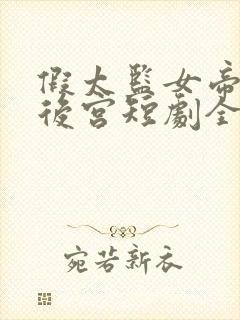 假太監女帝
後宮短劇全
宛若新衣